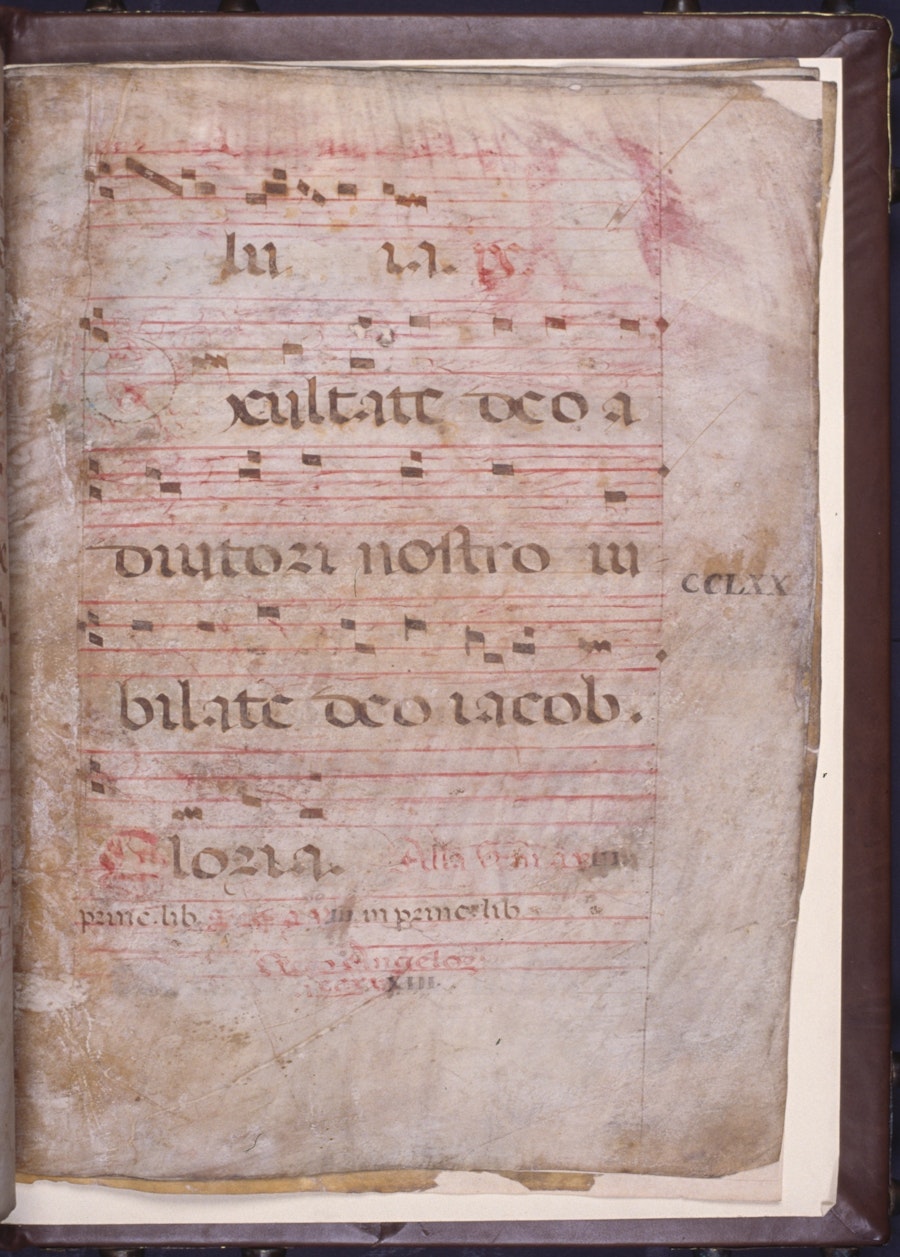 lu ia. ps.
xultate deo a
diutori nostro iu
CCLXX
bilate deo iacob.
Gloria. Alla
princ. lib. in princ. lib
Angeloꝝ
XIII.